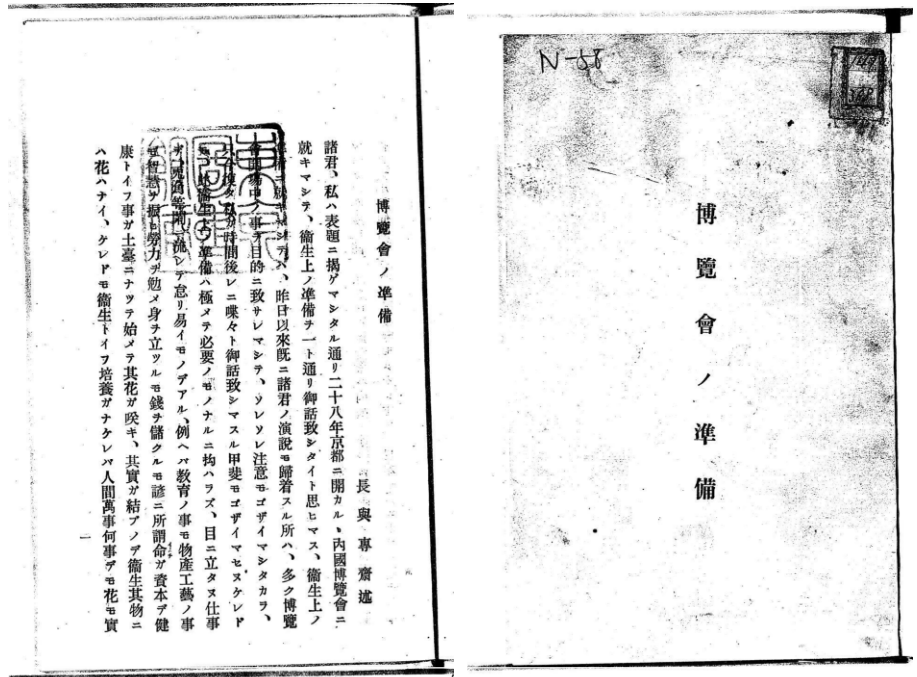 N-58
博覽會ノ準備
博覽會ノ準備
長與專齋述
諸君、私ハ表題ニ揭ゲマシタル通リ二十八年京都ニ開カルヽ內國博覽會ニ
就キマシテ、衞生上ノ準備ヲ一ト通リ御話致シタイト思ヒマス、衞生上ノ
準備ニ就キマシテハ、昨日以來旣ニ諸君ノ演說モ歸着スル所ハ、多ク博覽
會開場中ノ事ヲ目的ニ致サレマシテ、ソレソレ注意モゴザイマシタカラ、
私ガ時間後レニ喋々ト御話致シマスル甲斐モゴザイマセヌケレド
モ、此衞生上ノ準備ハ極メテ必要ノモノナルニ拘ハラズ、目ニ立タヌ仕事
等閑ニ流レテ怠リ易イモノデアル、例ヘバ敎育ノ事モ物產工藝ノ事
モ智慧ヲ振ヒ勞力ヲ勉メ身ヲ立ツルモ錢ヲ儲クルモ諺ニ所謂命ガ資本デ健
康トイフ事ガ土臺ニナツテ始メテ其花ガ咲キ、其實ガ結ブノデ衞生其物ニ
ハ花ハナイ、ケレドモ衞生トイフ培養ガナケレバ人間萬事何事デモ花モ實
一